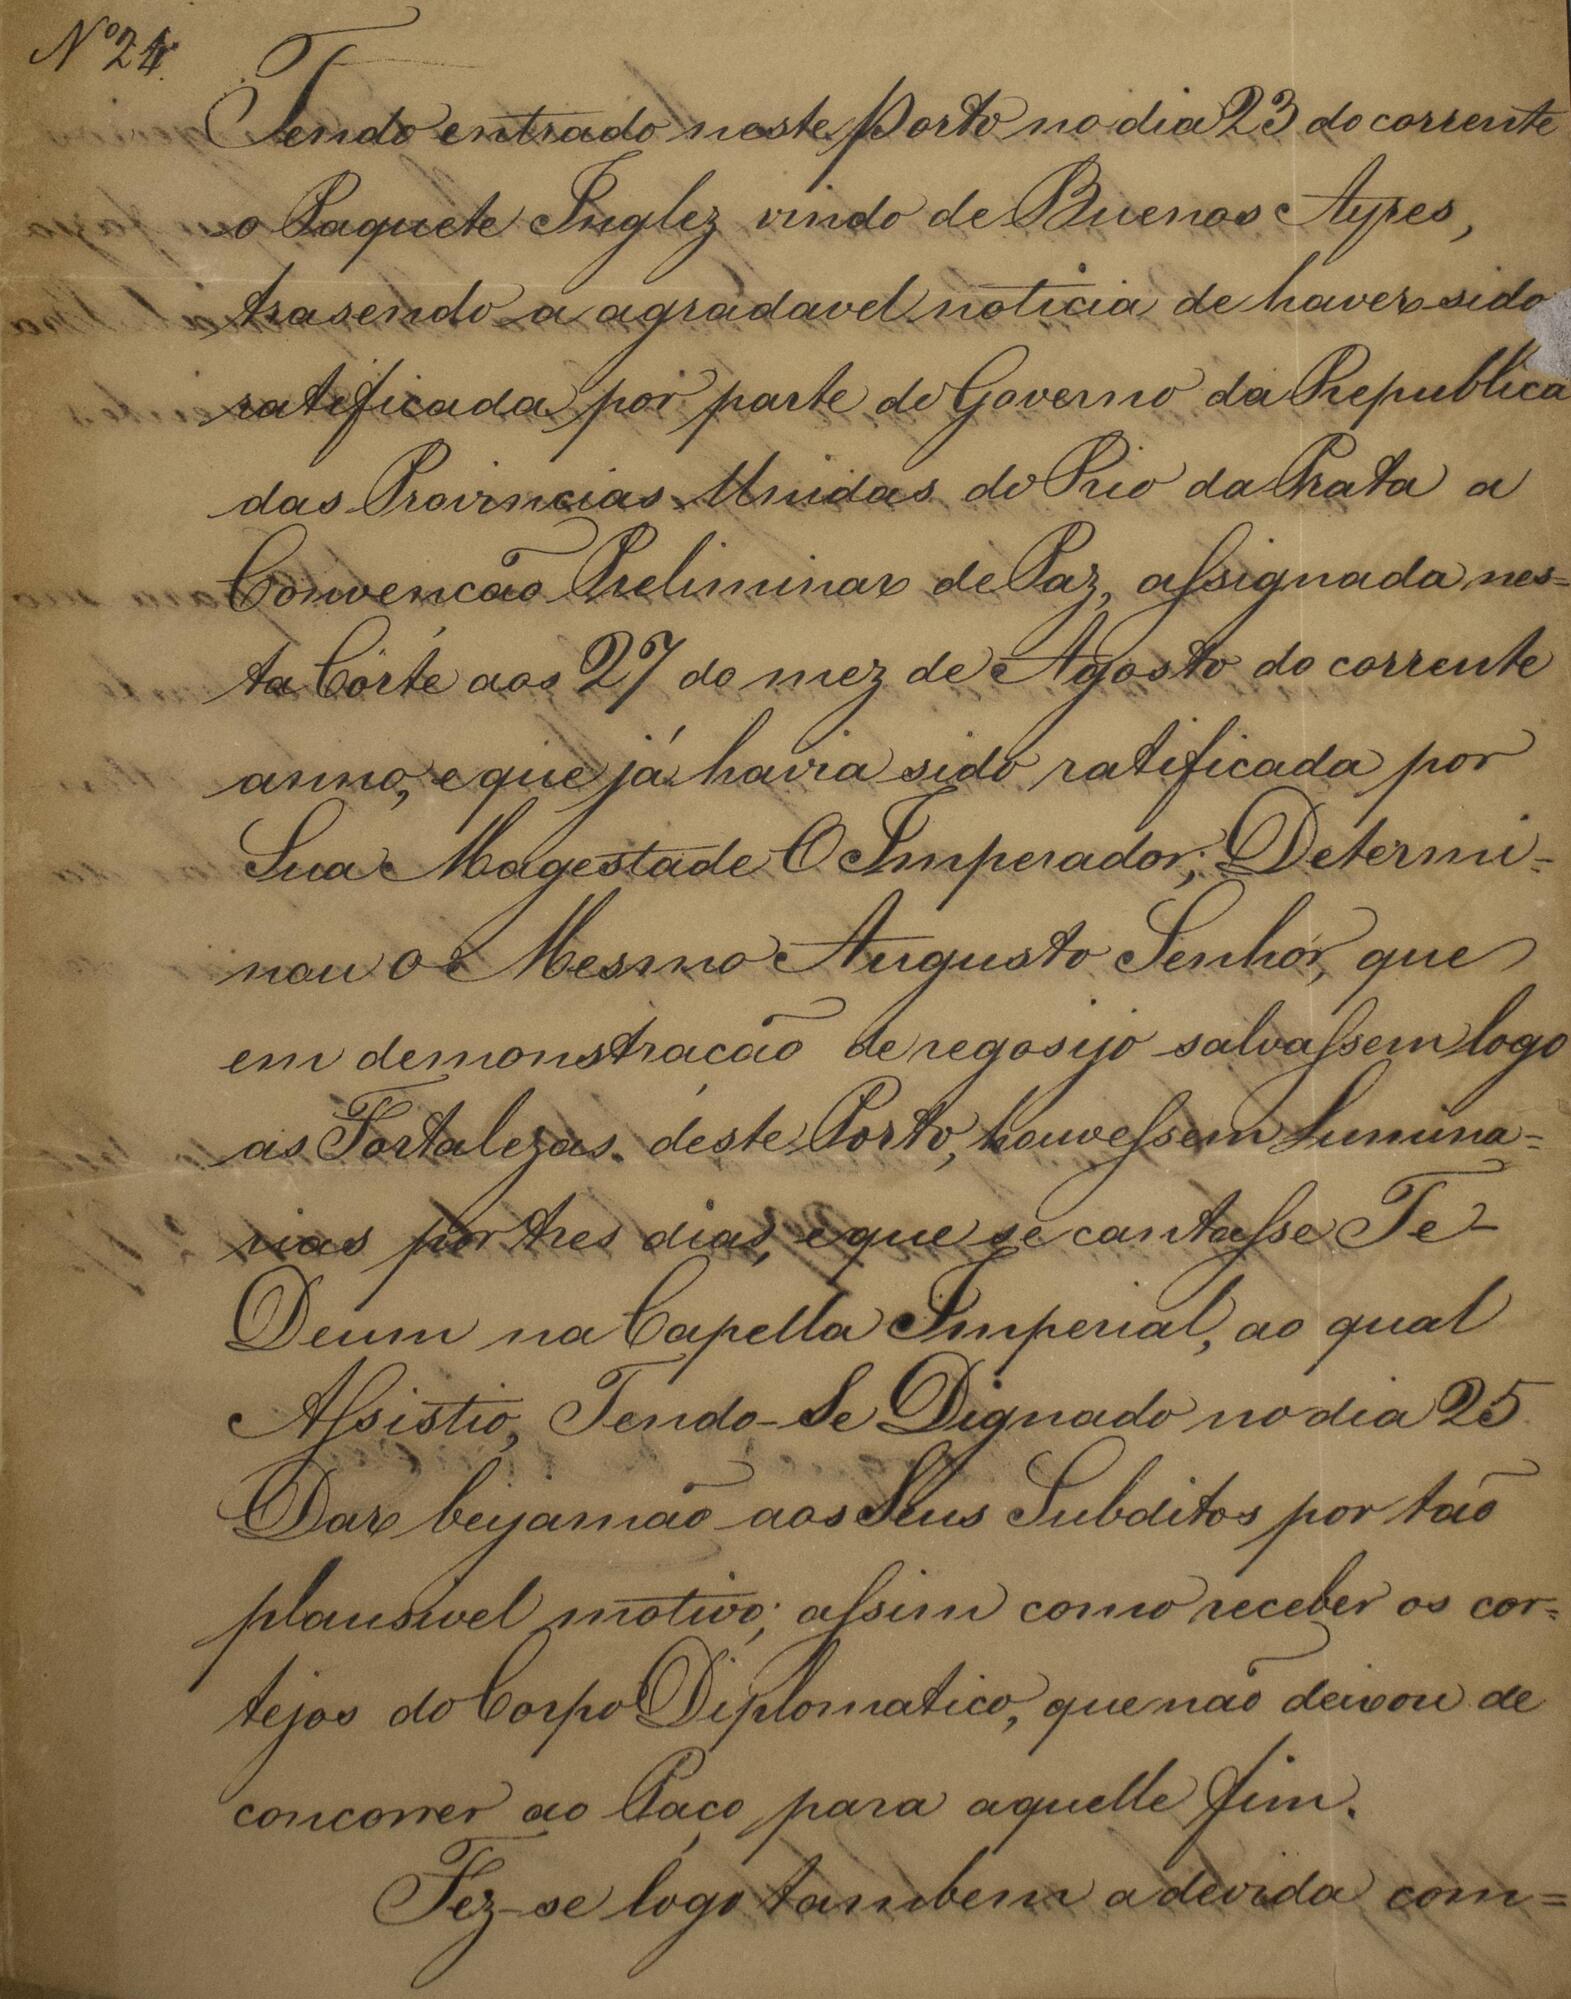 Nº 24.
Tendo entrado neste Porto no dia 23 do corrente
o Paquete Inglez vindo de Buenos Ayres,
trasendo a agradavel noticia de haver sido
ratificada por parte do Governo da Republica
das Provincias Unidas do Rio da Prata a
Convenção Preliminar de Paz, aſsignada nes=
ta Côrte aos 27 do mez de Agosto do corrente
anno, e que já havia sido ratificada por
Sua Magestade O Imperador; Determi-
nou O Mesmo Augusto Senhor, que
em demonstração de regosijo salvaſsem logo
as Fortalezas deste Porto, houveſsem Lumina=
rias por tres dias, e que se cantaſse Te-
Deum na Capella Imperial, ao qual
Aſsistio, Tendo-Se Dignado no dia 25
Dar beijamão aos Seus Subditos por tão
plausivel motivo; aſsim como receber os cor=
tejos do Corpo Diplomatico, que não deixou de
concorrer ao Paço para aquelle fim.
Fez-se logo tambem a devida com=